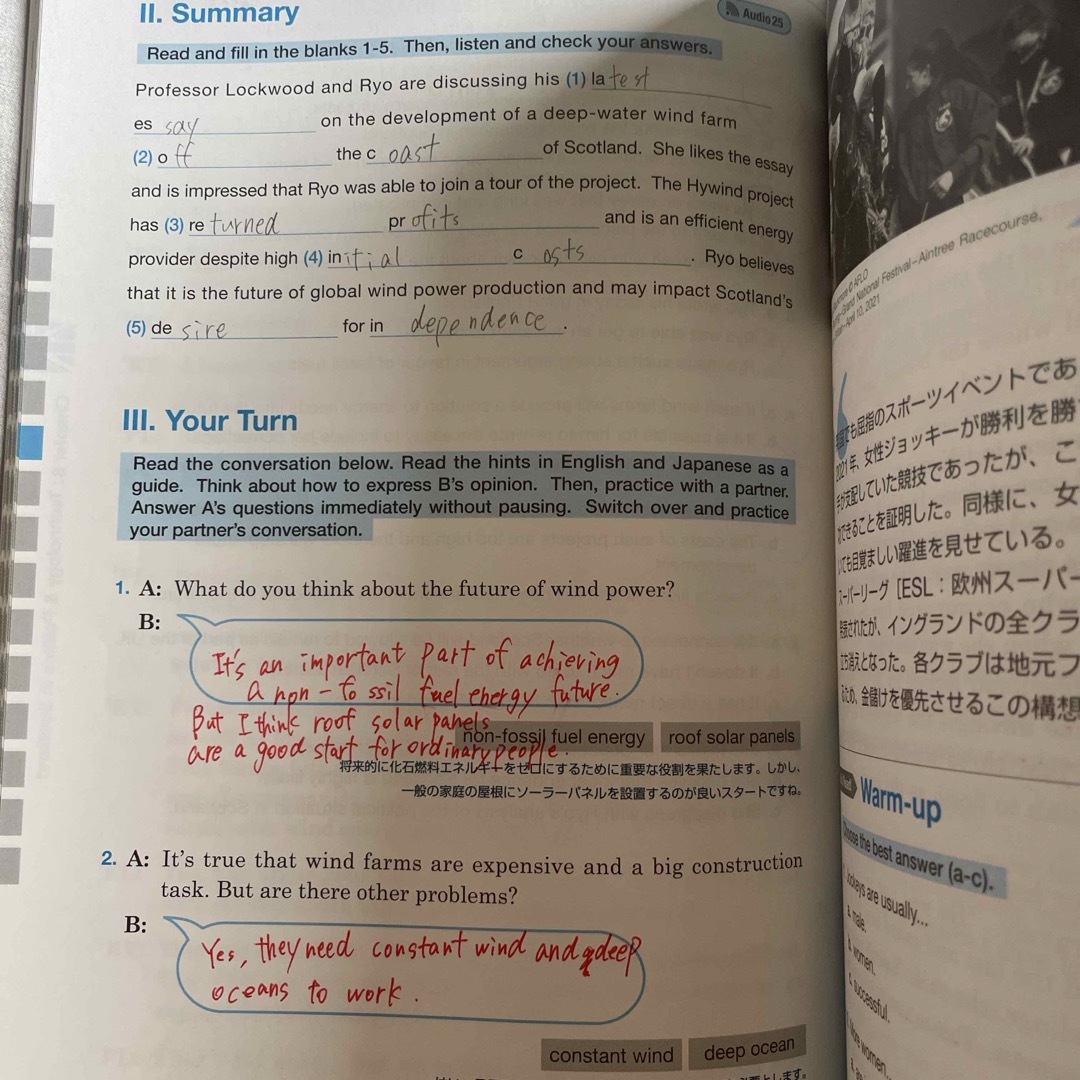 II. Summary
Audio 25
Read and fill in the blanks 1-5. Then, listen and check your answers.
Professor Lockwood and Ryo are discussing his (1) latest
essay on the development of a deep-water wind farm
(2) off the coast of Scotland. She likes the essay
and is impressed that Ryo was able to join a tour of the project. The Hywind project
has (3) returned profits and is an efficient energy
provider despite high (4) initial costs. Ryo believes
that it is the future of global wind power production and may impact Scotland's
(5) desire for independence.
III. Your Turn
Read the conversation below. Read the hints in English and Japanese as a
guide. Think about how to express B's opinion. Then, practice with a partner.
Answer A's questions immediately without pausing. Switch over and practice
your partner's conversation.
1. A: What do you think about the future of wind power?
B:
It's an important part of achieving
a non-fossil fuel energy future.
But I think roof solar panels
are a good start for ordinary people.
non-fossil fuel energy roof solar panels
将来的に化石燃料エネルギーをゼロにするために重要な役割を果たします。しかし、
一般の家庭の屋根にソーラーパネルを設置するのが良いスタートですね。
2. A: It's true that wind farms are expensive and a big construction
task. But are there other problems?
B:
Yes, they need constant wind and deep
oceans to work.
constant wind deep ocean
Grand National Festival–Aintree Racecourse,
April 10, 2021
でも屈指のスポーツイベントであ
2021年、女性ジョッキーが勝利を勝
が支配していた競技であったが、こ
できることを証明した。同様に、女
いても目覚ましい躍進を見せている。
スーパーリーグ［ESL：欧州スーパー
発表されたが、イングランドの全クラ
立ち消えとなった。各クラブは地元フ
るため、金儲けを優先させるこの構想
Warm-up
Choose the best answer (a-c).
Jockeys are usually...
a. male.
b. women.
c. successful.
More women...